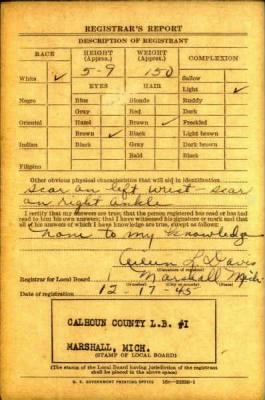 REGISTRAR'S REPORT
DESCRIPTION OF REGISTRANT
RACE HEIGHT (Approx.) WEIGHT (Approx.) COMPLEXION
5-9 150
White ✓ Sallow
EYES HAIR Light ✓
Negro Blue Blonde Ruddy
Gray Red Dark
Oriental Hazel Brown ✓ Freckled
Brown ✓ Black Light brown
Indian Black Gray Dark brown
Bald Black
Filipino
Other obvious physical characteristics that will aid in identification
Scar on left wrist - scar
on right ankle
I certify that my answers are true; that the person registered has read or has had
read to him his own answers; that I have witnessed his signature or mark and that
all of his answers of which I have knowledge are true, except as follows:
none to my knowledge
L Davis
(Signature of registrar)
Registrar for Local Board 1 Marshall Mich.
Date of registration 12-17-45
CALHOUN COUNTY L.B. #1
MARSHALL, MICH.
(STAMP OF LOCAL BOARD)
(The stamp of the Local Board having jurisdiction of the registrant
shall be placed in the above space)
U. S. GOVERNMENT PRINTING OFFICE